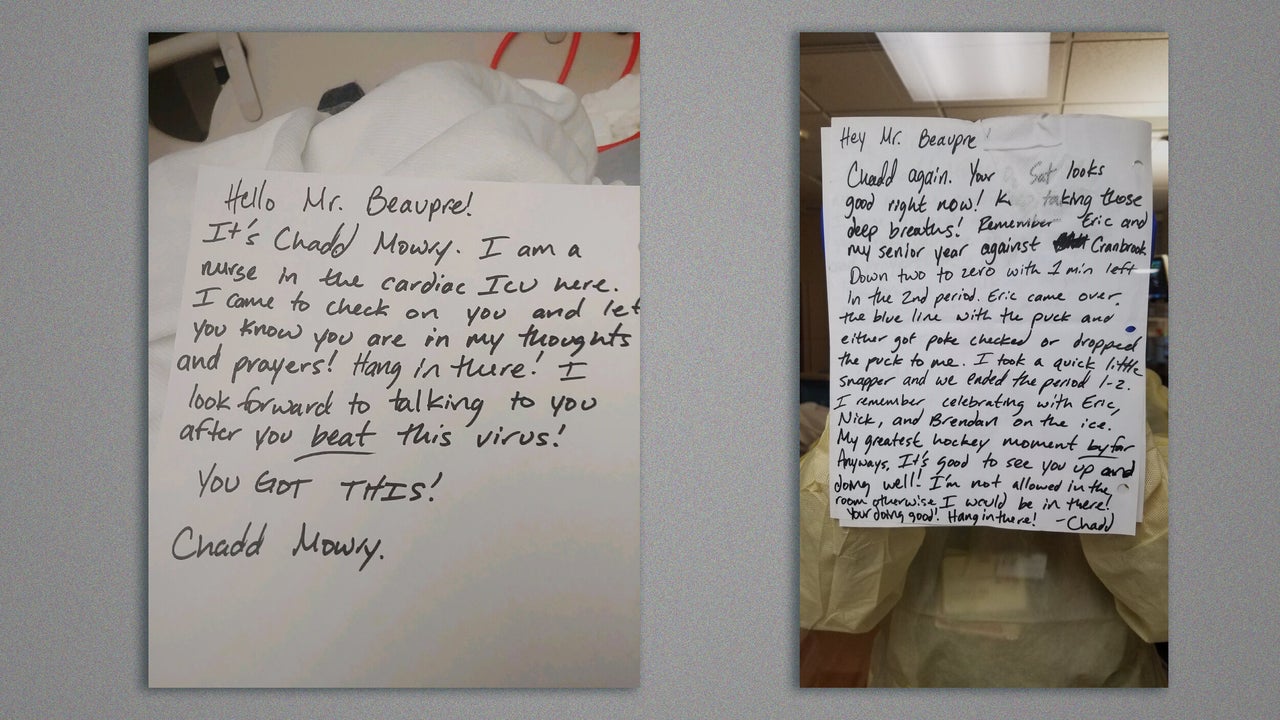 Hello Mr. Beaupre!
It's Chadd Mowry. I am a
nurse in the cardiac ICU here.
I came to check on you and let
you know you are in my thoughts
and prayers! Hang in there! I
look forward to talking to you
after you beat this virus!
YOU GOT THIS!
Chadd Mowry.
Hey Mr. Beaupre
Chadd again. Your Sat looks
good right now! taking those
deep breaths! Remember Eric and
my senior year against Cranbrook
Down two to zero with 1 min left
in the 2nd period. Eric came over
the blue line with the puck and
either got poke checked or dropped
the puck to me. I took a quick little
snapper and we ended the period 1-2.
I remember celebrating with Eric,
Nick, and Brendan on the ice.
My greatest hockey moment by far
Anyways, It's good to see you up and
doing well! I'm not allowed in the
room otherwise I would be in there!
Your doing good! Hang in there! -Chadd